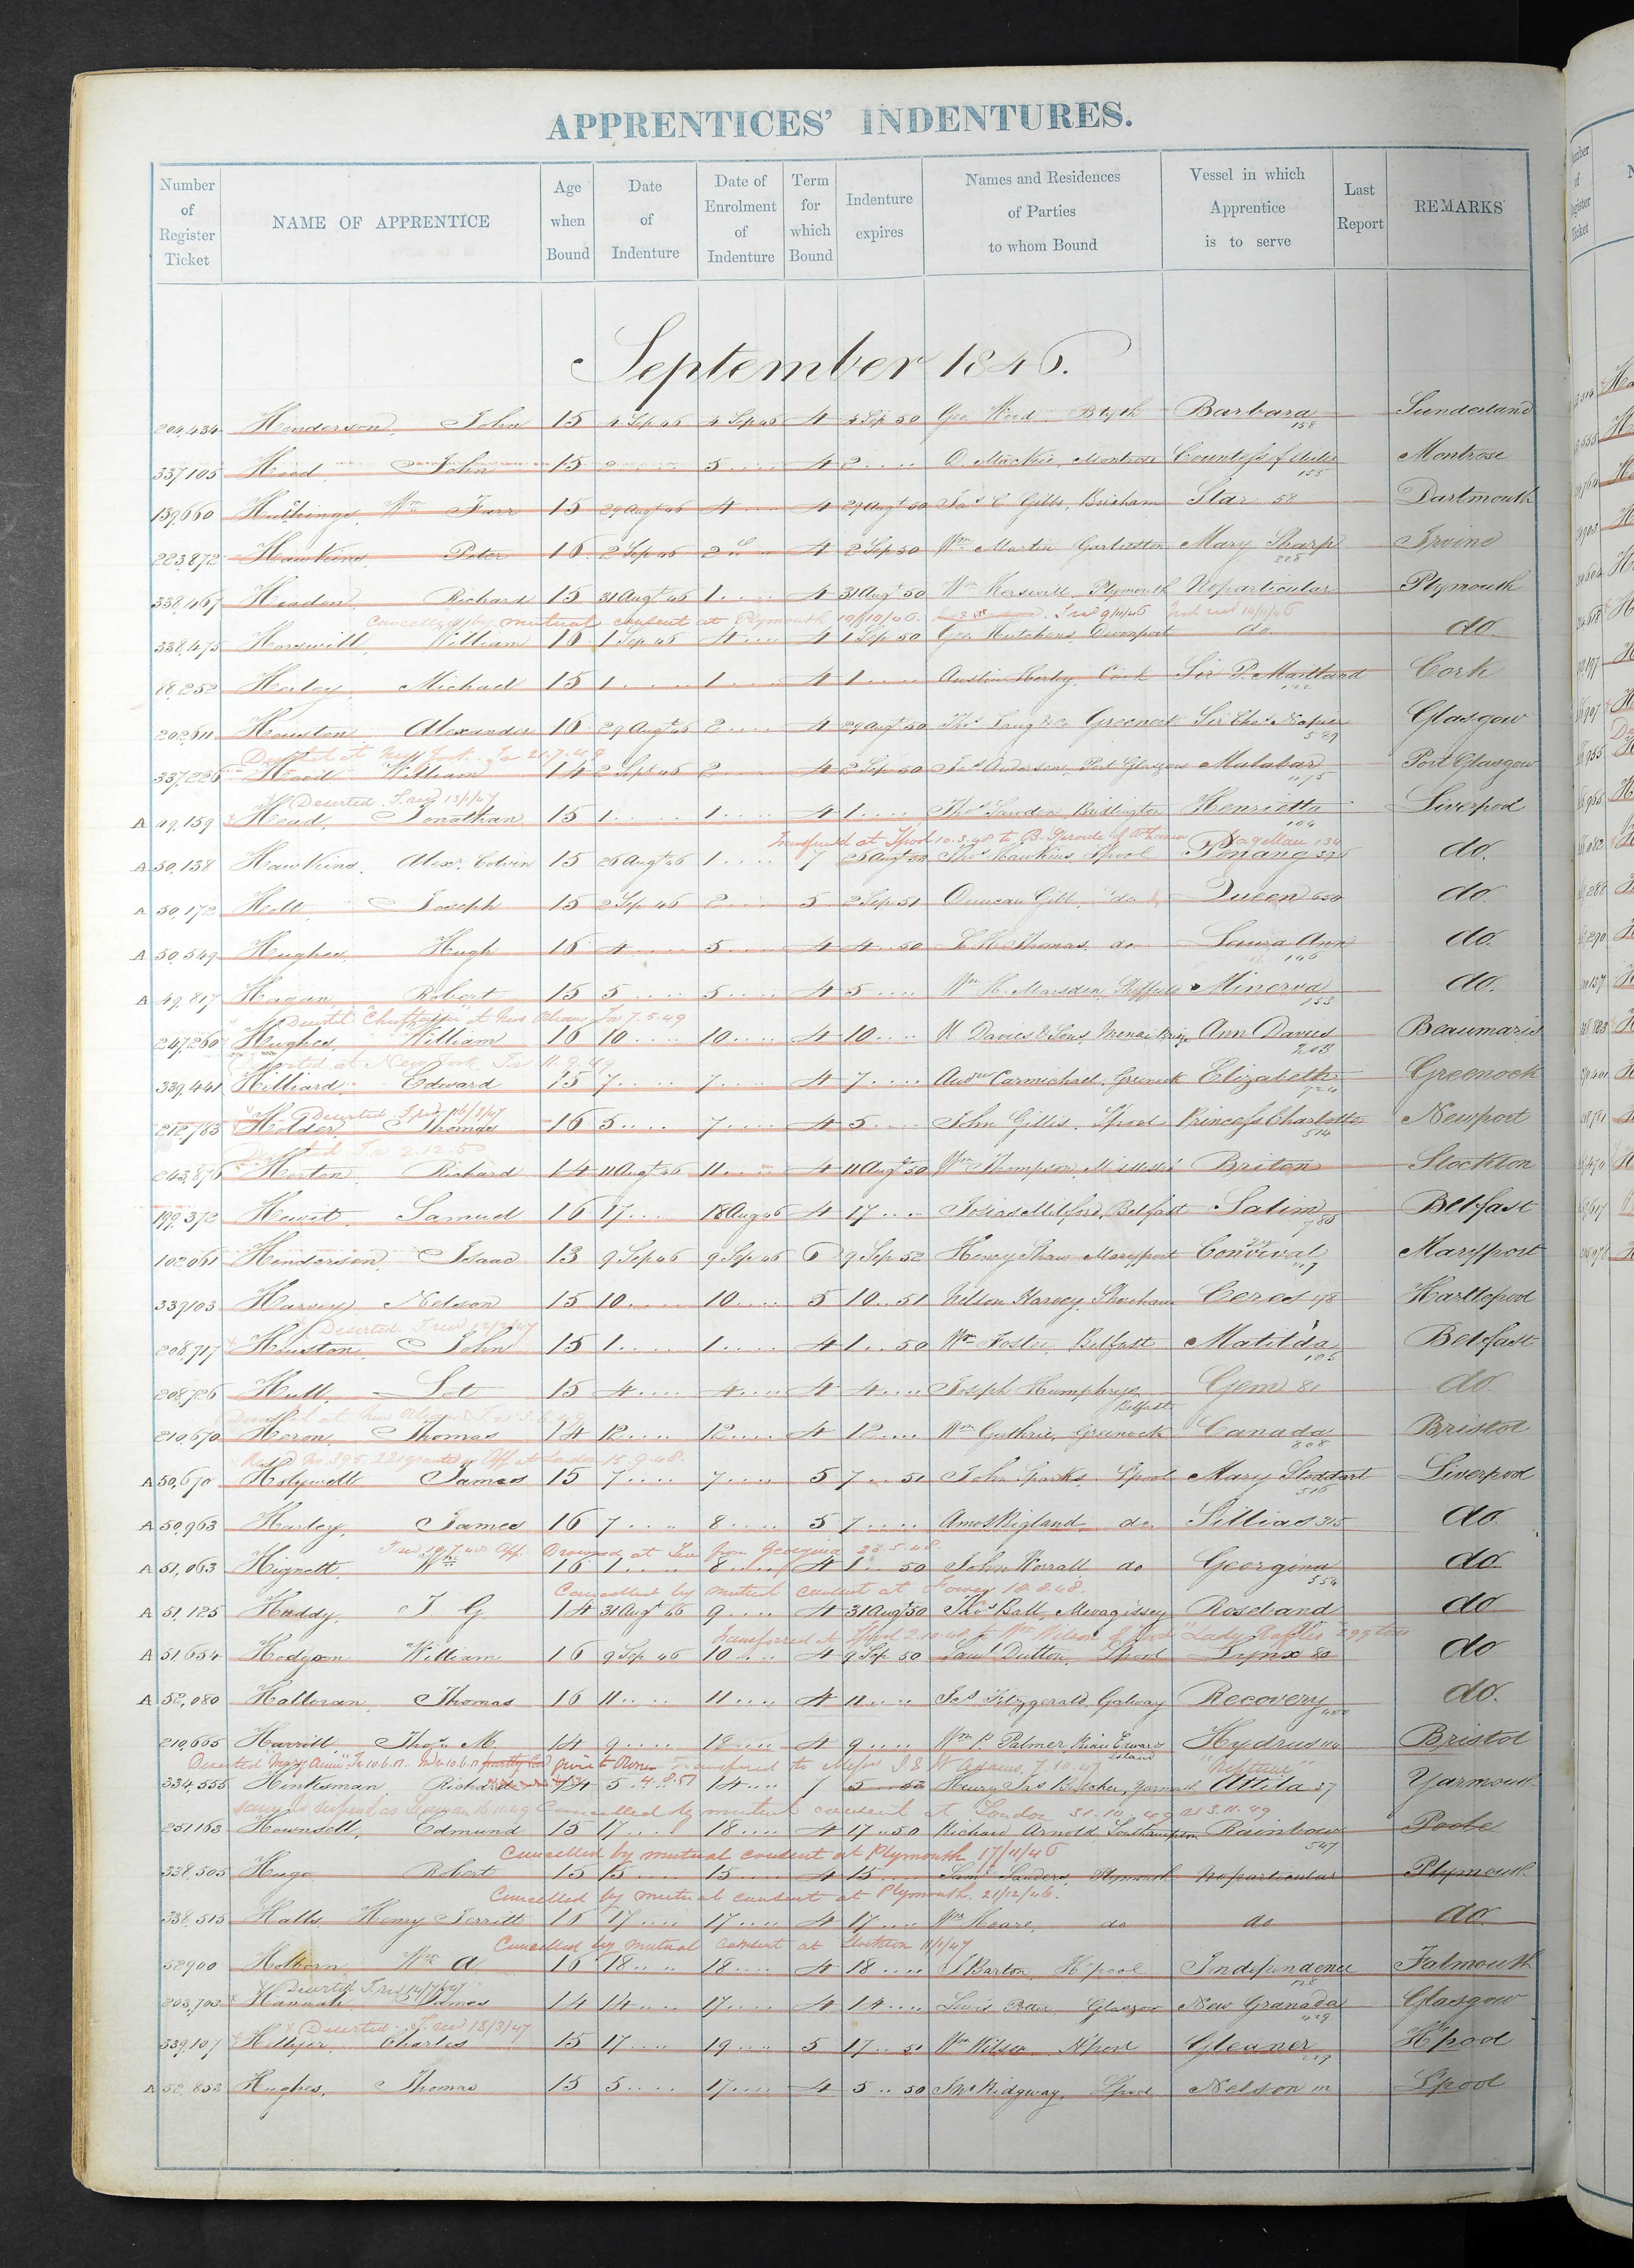 APPRENTICES' INDENTURES.
Number of Register Ticket NAME OF APPRENTICE Age when Bound Date of Indenture Date of Enrolment of Indenture Term for which Bound Indenture expires Names and Residences of Parties to whom Bound Vessel in which Apprentice is to serve Last Report REMARKS
September 1846.
204,434 Henderson, John 15 4 Sep 46 4 Sep 46 4 4 Sep 50 Geo Wood Blyth Barbara 158 Sunderland
337,105 Head John 15 2 5 .... 4 2 .... D. Mackie, Montrose Countess of 155 Montrose
159,660 Wm Farr 15 29 Augt 46 4 .... 4 29 Augt 50 Jas C Gibbs, Brixham Star 58 Dartmouth
223,872 Hawkins, Peter 16 2 Sep 46 2 .... 4 2 Sep 50 Wm Martin Garlieston Mary Sharp 228 Irvine
338,467 Headon, Richard 15 31 Augt 46 1 .... 4 31 Augt 50 Wm Horswill, Plymouth No particular Plymouth
Cancelled by mutual consent at Plymouth 10/10/46.
338,475 Horswill, William 16 1 Sep 46 4 .... 4 1 Sep 50 Geo Hutchens, Devonport do. do.
68,252 Herley, Michael 15 1 .... 1 .... 4 1 .... Austin Herley, Cork Sir P. Maitland 122 Cork
202,611 Houston, Alexander 16 29 Augt 46 2 .... 4 29 Augt 50 Thos Lang & Co Greenock Sir Chas Napier 529 Glasgow
Deserted at New York
337,226 Hood William 14 2 Sept 46 2 .... 4 2 Sep 50 Jas Anderson, Port Glasgow Malabar 1175 Port Glasgow
Deserted 13/1/47
A 49,159 Head, Jonathan 15 1 .... 1 .... 4 1 .... Thos Sawdon Bridlington Henrietta 104 Liverpool
Transferred at Lpool 10.3.48 to Magellan 134
A 50,138 Hawkins, Alexr. Edwin 15 26 Augt 46 1 .... 7 Thos Hawkins, Lpool Penang do.
A 50,172 Holt Joseph 15 2 Sep 46 2 .... 5 2 Sep 51 Duncan Gibb, do Queen 650 do.
A 50,549 Hughes, Hugh 16 4 .... 5 .... 4 4 .. 50 Thomas, do Louisa Ann 146 do.
A 49,817 Hagan, Robert 15 5 .... 5 .... 4 5 .... Wm H. Marsden, Sheffield Minerva 153 do.
Deserted "Chieftain" at New Orleans 7.5.49
247,260 Hughes, William 16 10 .... 10 .... 4 10 .... Davies & Sons, Menai Bridge Ann Davies 203 Beaumaris
Deserted at New York. 11.9.49
339,441 Hilliard, Edward 15 7 .... 7 .... 4 7 .... Andw Carmichael, Greenock Elizabeth 724 Greenock
Deserted
212,783 Holder, Thomas 16 5 .... 7 .... 4 5 .... John Gillis, Lpool Princess Charlotte 514 Newport
2.12.50
243,876 Horton, Richard 14 11 Augt 46 11 .... 4 11 Augt 50 Wm Thompson, Middlesbro' Briton Stockton
199,372 Hewit, Samuel 16 17 .... 18 Aug 46 4 17 .... Josias Milford, Belfast Salim 780 Belfast
102,061 Henderson, Isaac 13 9 Sep 46 9 Sep 46 6 9 Sep 52 Henry Shaw Maryport Convival 117 Maryport
339,103 Harvey, Nelson 15 10 .... 10 .... 5 10 .. 51 Nelson Harvey, Shoreham Ceres 178 Hartlepool
Deserted 12/3/47
208,717 Houston, John 15 1 .... 1 .... 4 1 .. 50 Wm Foster, Belfast Matilda 105 Belfast
208,726 Hull, Lot 15 4 .... 4 .... 4 4 .... Joseph Humphrys, Belfast Gem 81 do.
Deserted at New Orleans
210,670 Heron, Thomas 14 12 .... 12 .... 4 12 .... Wm Guthrie, Greenock Canada 808 Bristol
Regd No 395,221 granted at London 15.9.48.
A 50,670 Holywell James 15 7 .... 7 .... 5 7 .. 51 John Sparks, Lpool Mary Stoddart 516 Liverpool
A 50,963 Harley, James 16 7 .... 8 .... 5 7 .... Amos Bigland, do Lillias 315 do.
Drowned at Sea from Georgina 23.5.48.
A 51,063 Hignett, Wm 16 1 .... 8 .... 4 1 .. 50 John Worrall, do Georgina 554 do
Cancelled by mutual consent at Fowey 18.8.48.
A 51,125 Huddy, J G. 14 31 Augt 46 9 .... 4 31 Augt 50 Thos Ball, Mevagissey Roseland do
Transferred at Lpool 2.10.48 to Wm Wilson "Lady Raffles" 299 tons
A 51,654 Hodgson William 16 9 Sep 46 10 .... 4 9 Sep 50 Saml Dutton, Lpool Lynx 80 do
A 52,080 Halloran, Thomas 16 11 .... 11 .... 4 11 .... Jas Fitzgerald, Galway Recovery 400 do.
210,665 Harrill, Thos. M. 14 9 .... 12 .... 4 9 .... Wm P. Palmer, Prince Edwards Island Hydrus 114 Bristol
Deserted "Mary Ann" Transferred to Messrs J & W Adams. 7.10.47 "Neptune"
334,555 Hinksman, Richard 14 5 .. 14 .... 7 5 .. 53 Henry Jas Butcher, Yarmouth Attila 37 Yarmouth
Cancelled by mutual consent at London 31.10.49
251,163 Hounsell, Edmund 15 17 .... 18 .... 4 17 .. 50 Richard Arnold, Southampton Rainbow 527 Poole
Cancelled by mutual consent at Plymouth 17/11/46
338,505 Hugo Robert 15 15 .... 15 .... 4 15 .... Saml Sanders, Plymouth No particular Plymouth
Cancelled by mutual consent at Plymouth. 21/12/46.
338,515 Halls Henry Jerritt 16 17 .... 17 .... 4 17 .... Wm Hoare, do do do.
Cancelled by mutual consent at Stockton 11/1/47
52900 Holtorn Wm A 16 18 .... 18 .... 4 18 .... J Barton, H'pool Independence 128 Falmouth
Deserted
203,703 Hannah, James 14 14 .... 17 .... 4 14 .... Glasgow New Granada 429 Glasgow
Deserted 18/3/47
339,107 Hillyer, Charles 15 17 .... 19 .... 5 17 .. 51 Wm Wilson H'pool Gleaner H'pool
A 52,852 Hughes, Thomas 15 5 .... 17 .... 4 5 .. 50 Jno Ridgway, Lpool Nelson 111 Lpool